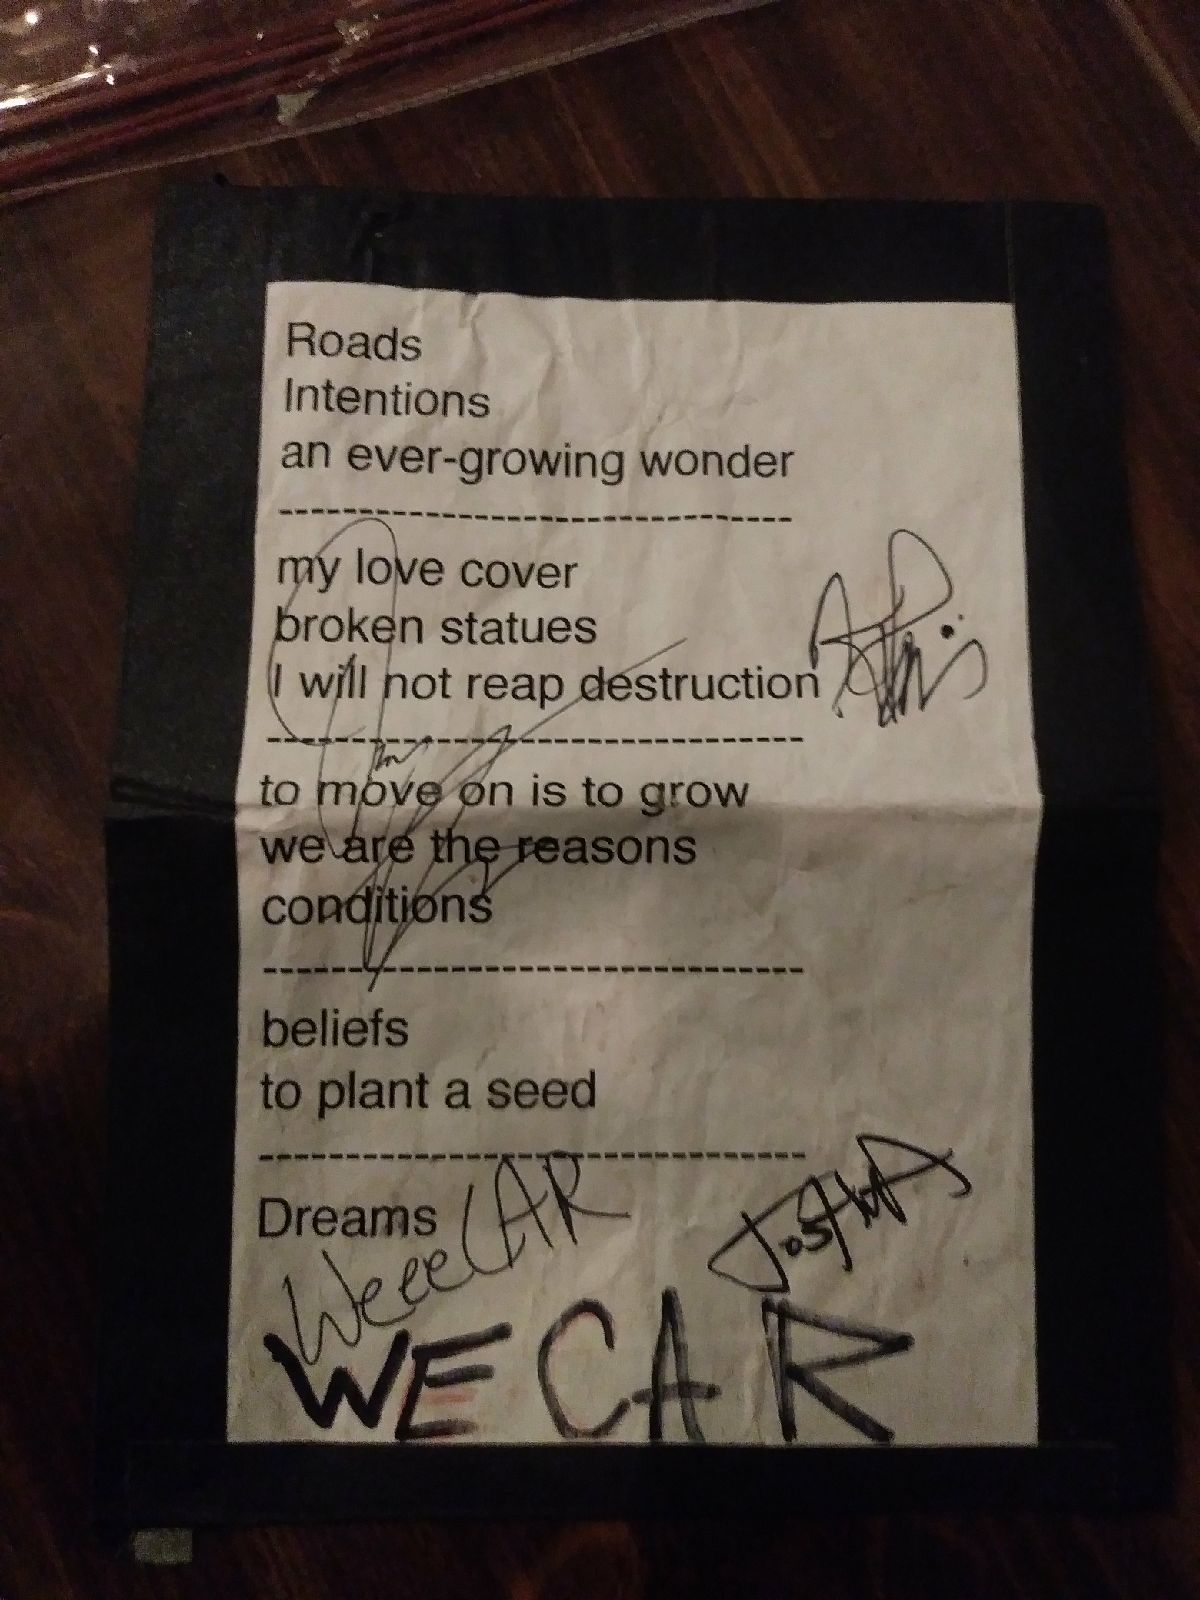 Roads
Intentions
an ever-growing wonder
----------------------------
my love cover
broken statues
I will not reap destruction
-----------------------------
to move on is to grow
we are the reasons
conditions
-----------------------------
beliefs
to plant a seed
------------------------------
Dreams
WeeeCAR
WE CAR